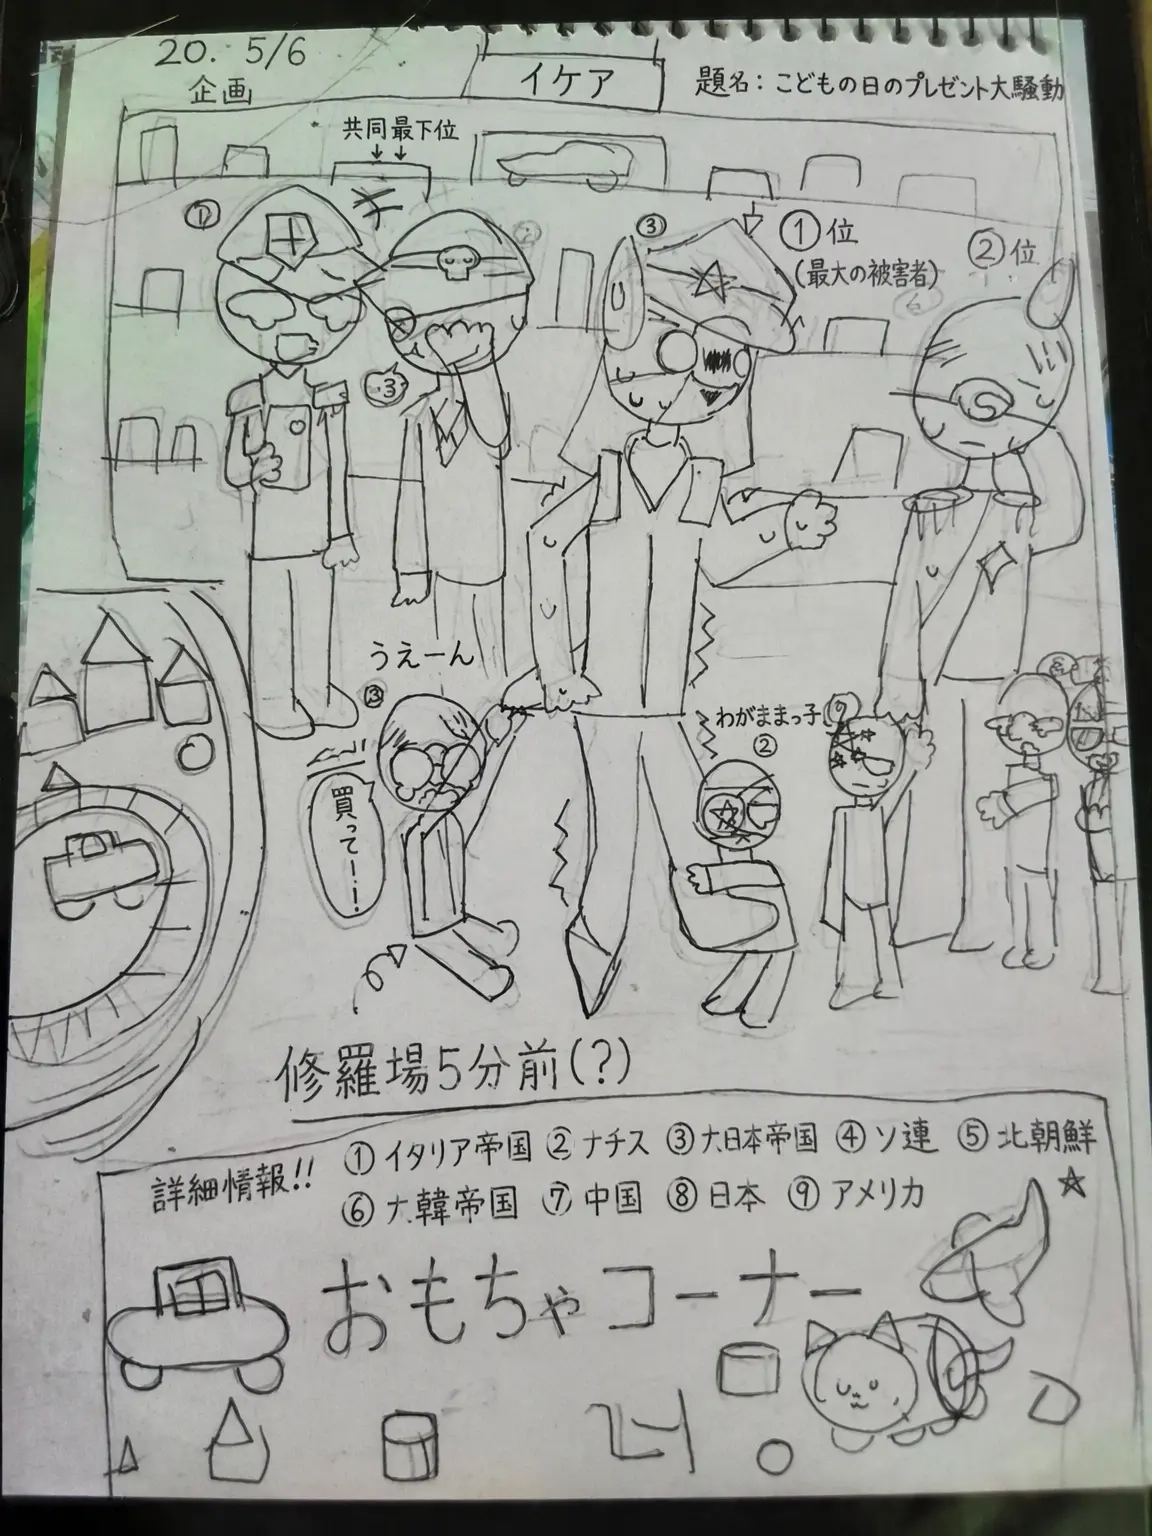 20. 5/6
企画
イケア
題名：こどもの日のプレゼント大騒動
共同最下位
↓↓
①
②
③
①位
(最大の被害者)
②位
⑥
③
うえーん
③
わがままっ子
②
⑨
⑧
買って！！
修羅場5分前(?)
詳細情報!!
①イタリア帝国 ②ナチス ③大日本帝国 ④ソ連 ⑤北朝鮮
⑥大韓帝国 ⑦中国 ⑧日本 ⑨アメリカ
おもちゃコーナー